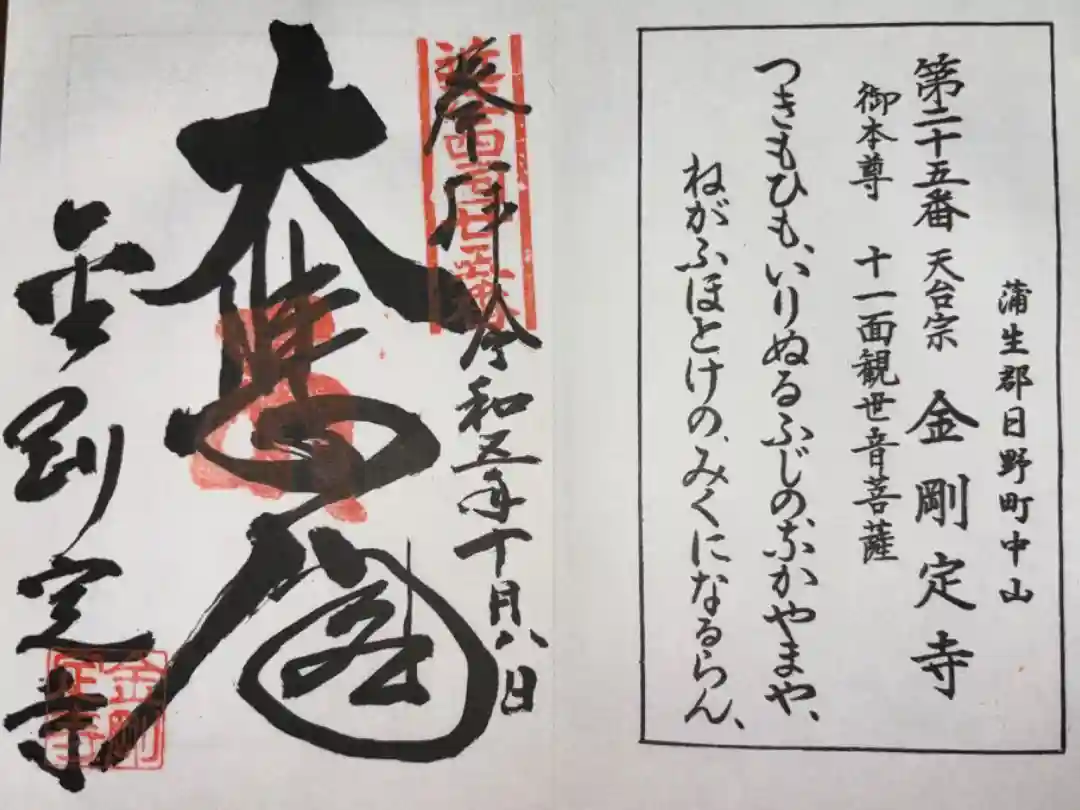 蒲生郡日野町中山
第二十五番 天台宗 金剛定寺
御本尊 十一面観世音菩薩
つきもひも、いりぬるふじのなかやまや、
ねがふほとけの、みくになるらん、
奉拝 令和五年十月八日
大悲閣
金剛定寺
金剛定寺